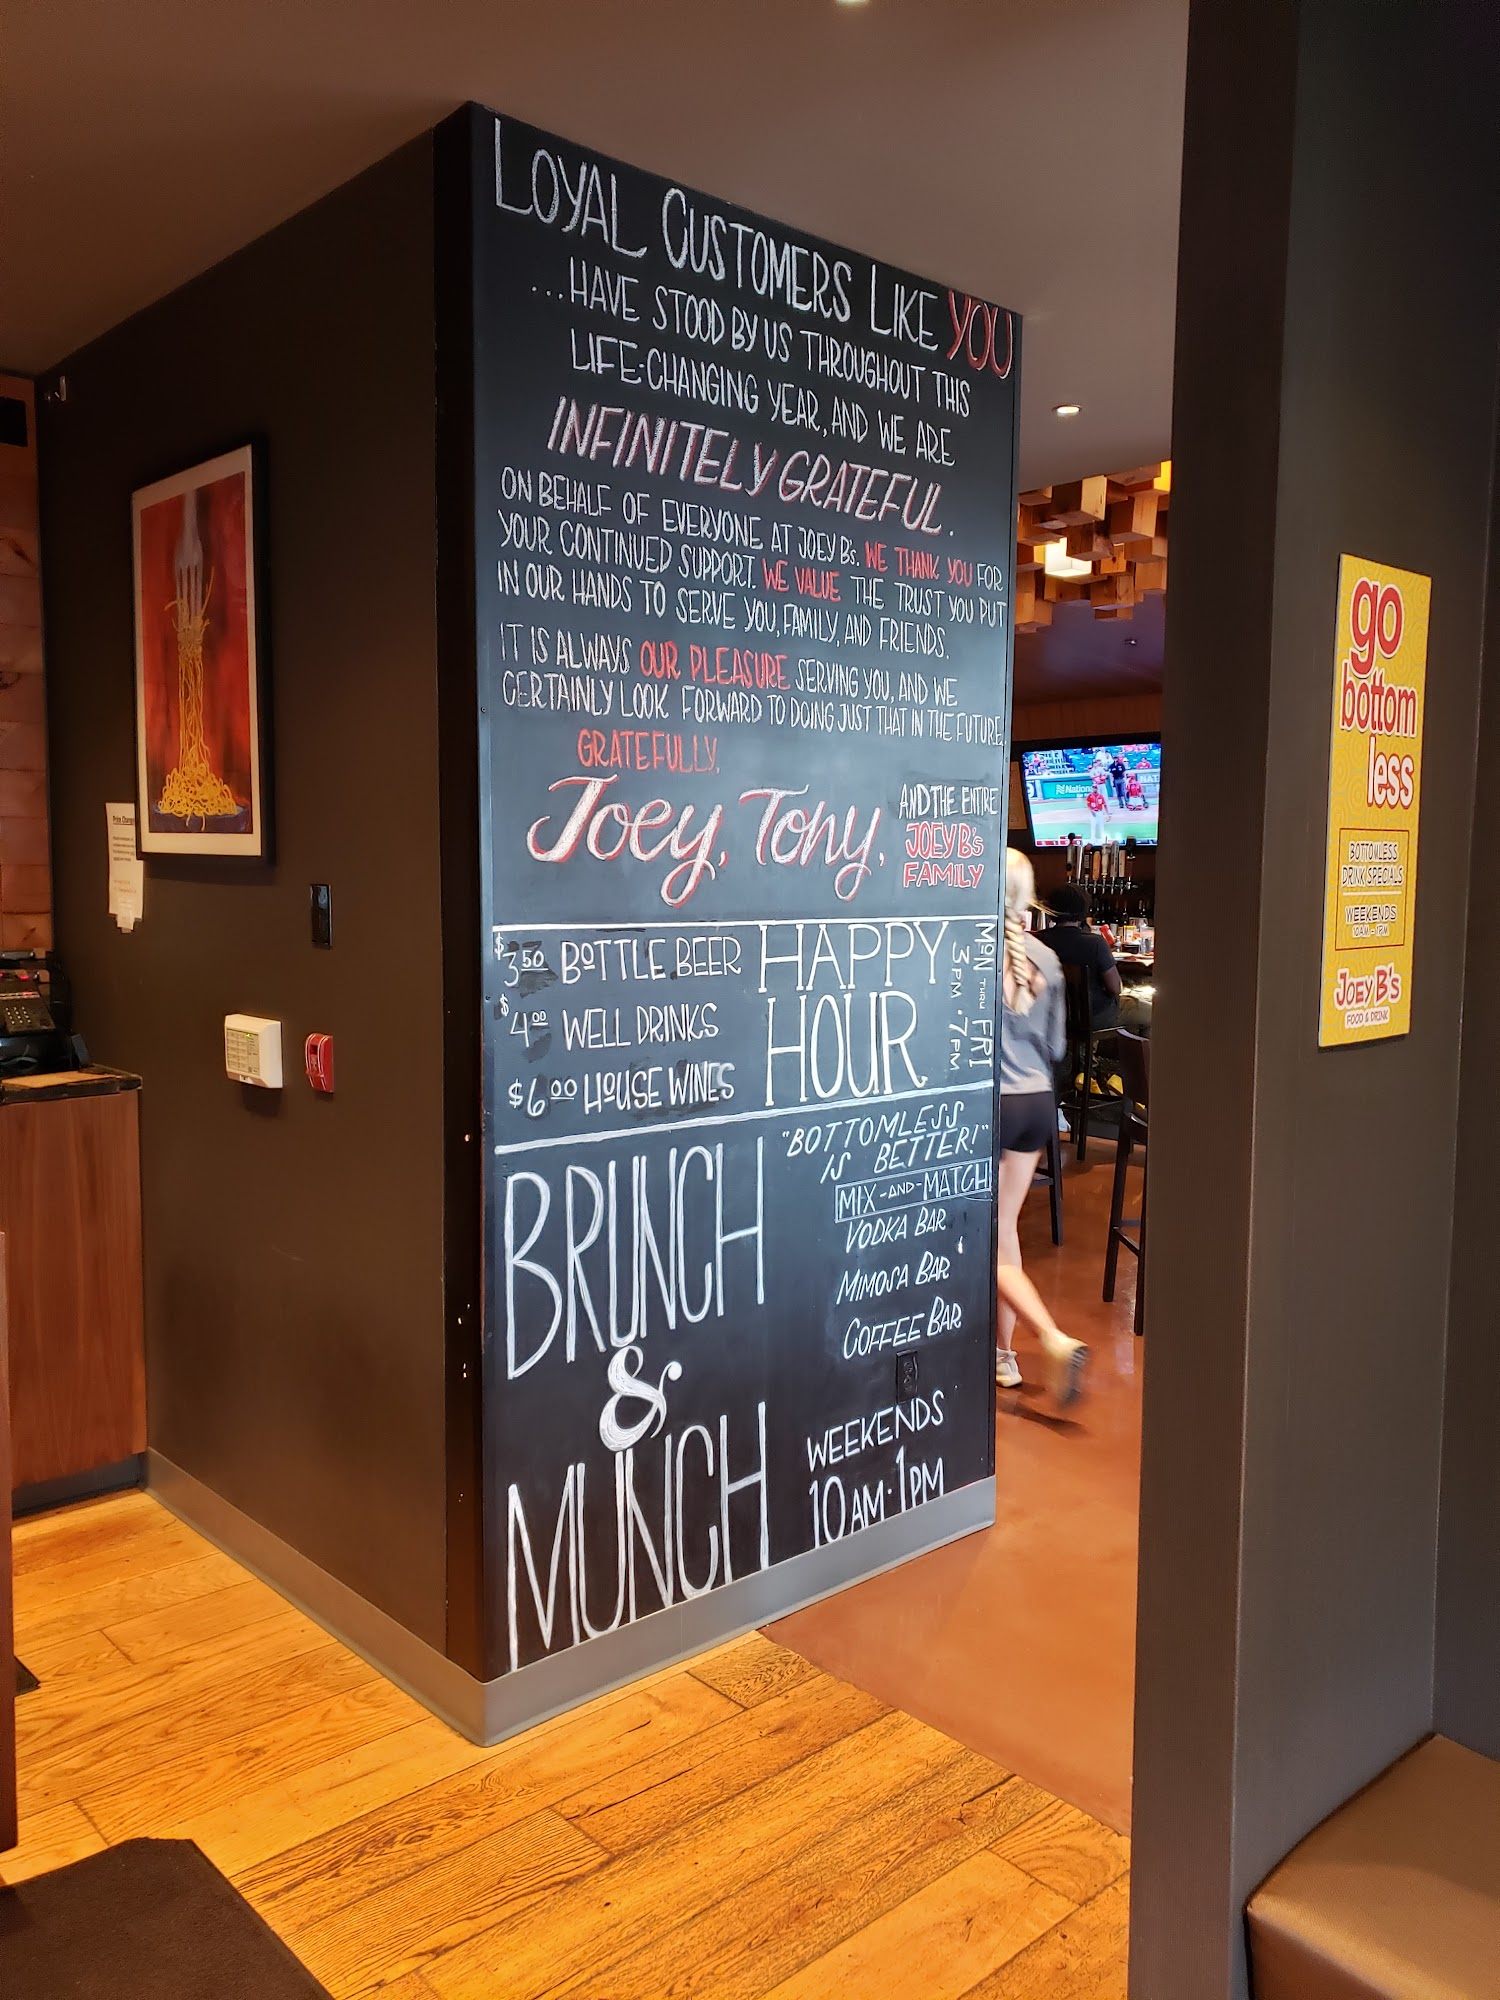 LOYAL CUSTOMERS LIKE YOU
...HAVE STOOD BY US THROUGHOUT THIS
LIFE-CHANGING YEAR, AND WE ARE
INFINITELY GRATEFUL.
ON BEHALF OF EVERYONE AT JOEY B's. WE THANK YOU FOR
YOUR CONTINUED SUPPORT. WE VALUE THE TRUST YOU PUT
IN OUR HANDS TO SERVE YOU, FAMILY, AND FRIENDS.
IT IS ALWAYS OUR PLEASURE SERVING YOU, AND WE
CERTAINLY LOOK FORWARD TO DOING JUST THAT IN THE FUTURE.
GRATEFULLY,
Joey, Tony,
AND THE ENTIRE
JOEY B's
FAMILY
$3.50 BOTTLE BEER
$4.00 WELL DRINKS
$6.00 HOUSE WINES
HAPPY
HOUR
MON THRU FRI
3PM · 7PM
BRUNCH
&
MUNCH
"BOTTOMLESS
IS BETTER!"
MIX-AND-MATCH
VODKA BAR
MIMOSA BAR
COFFEE BAR
WEEKENDS
10AM · 1PM
go
bottom
less
BOTTOMLESS
DRINK SPECIALS
WEEKENDS
10AM - 1PM
JOEY B's
FOOD & DRINK